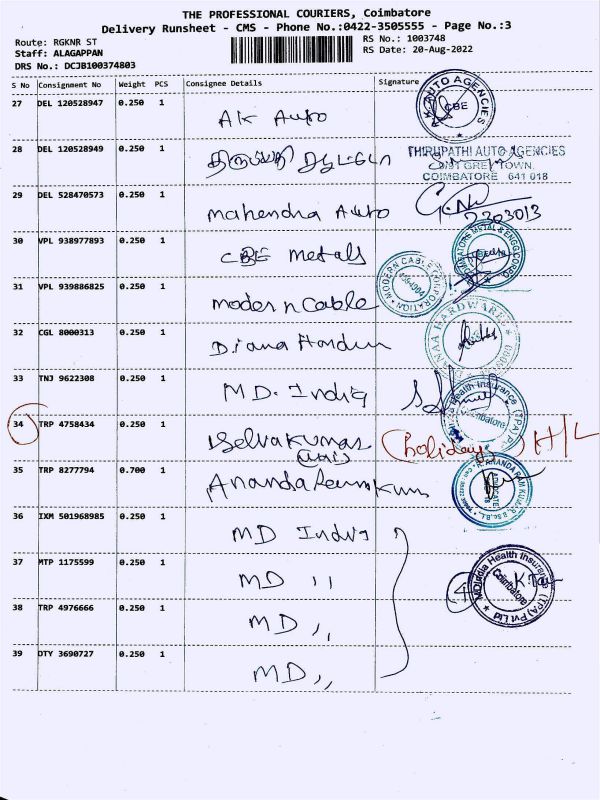 THE PROFESSIONAL COURIERS, Coimbatore
Delivery Runsheet - CMS - Phone No.:0422-3505555 - Page No.:3
Route: RGKNR ST
Staff: ALAGAPPAN
DRS No.: DCJB100374803
RS No.: 1003748
RS Date: 20-Aug-2022
S No Consignment No Weight PCS Consignee Details Signature
27 DEL 120528947 0.250 1 AK Auto
AUTO AGENCIES CBE
28 DEL 120528949 0.250 1 திருப்பதி ஆட்டோ
THIRUPATHI AUTO AGENCIES
COIMBATORE 641 018
29 DEL 528470573 0.250 1 Mahendra Auto
2303013
30 VPL 938977893 0.250 1 CBE metals
31 VPL 939886825 0.250 1 modern Cable
MODERN CABLE CORPORATION
32 CGL 8000313 0.250 1 Diana Hardw
HARDWARES
33 TNJ 9622308 0.250 1 MD. India
Health Insurance (TPA) Coimbatore
34 TRP 4758434 0.250 1 Selvakumar (holiday) H/L
35 TRP 8277794 0.700 1 Ananda Ram Kum
ANANDA RAM KUMAR ADVOCATE
36 IXM 501968985 0.250 1 MD India
37 MTP 1175599 0.250 1 MD ,,
MDIndia Health Insurance (TPA) Pvt Ltd Coimbatore
38 TRP 4976666 0.250 1 MD ,,
39 DTY 3690727 0.250 1 MD ,,